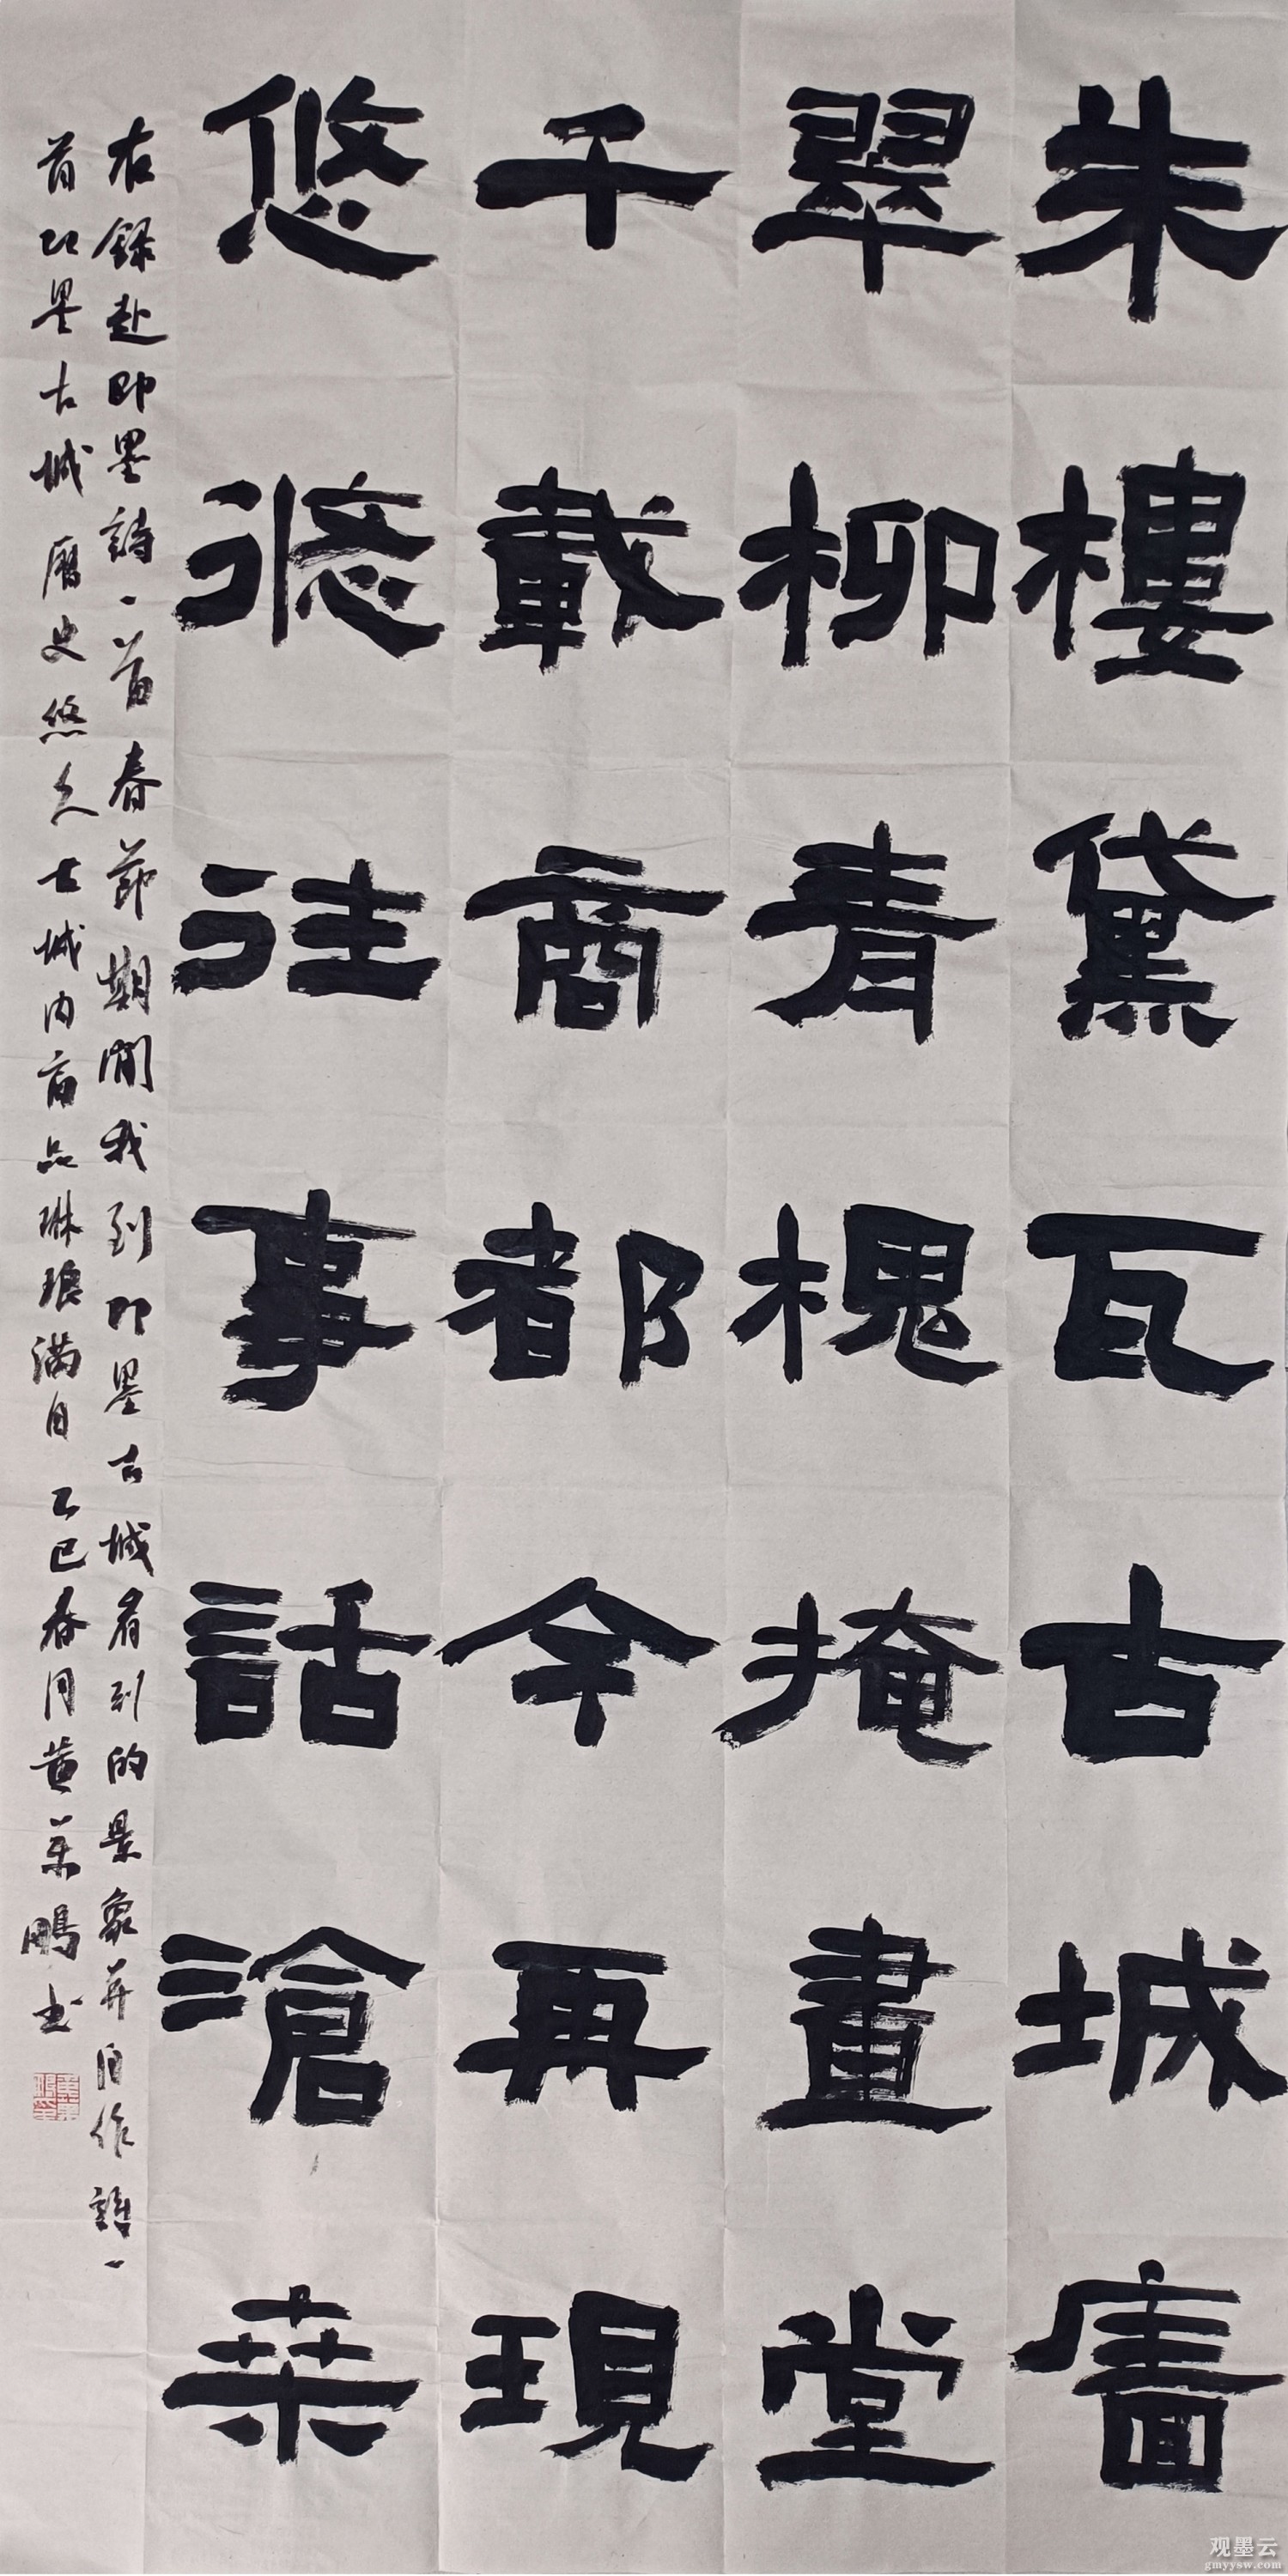 朱樓黛瓦古城廧
翠柳青槐掩畫堂
千載商都今再現
悠悠往事話滄桒
右錄赴即墨詩一首春節期間我到即墨古城看到的景象并自作詩一
首即墨古城歷史悠久古城内商品琳琅满目乙巳春月黄鵬书
观墨云
gmyysw.com